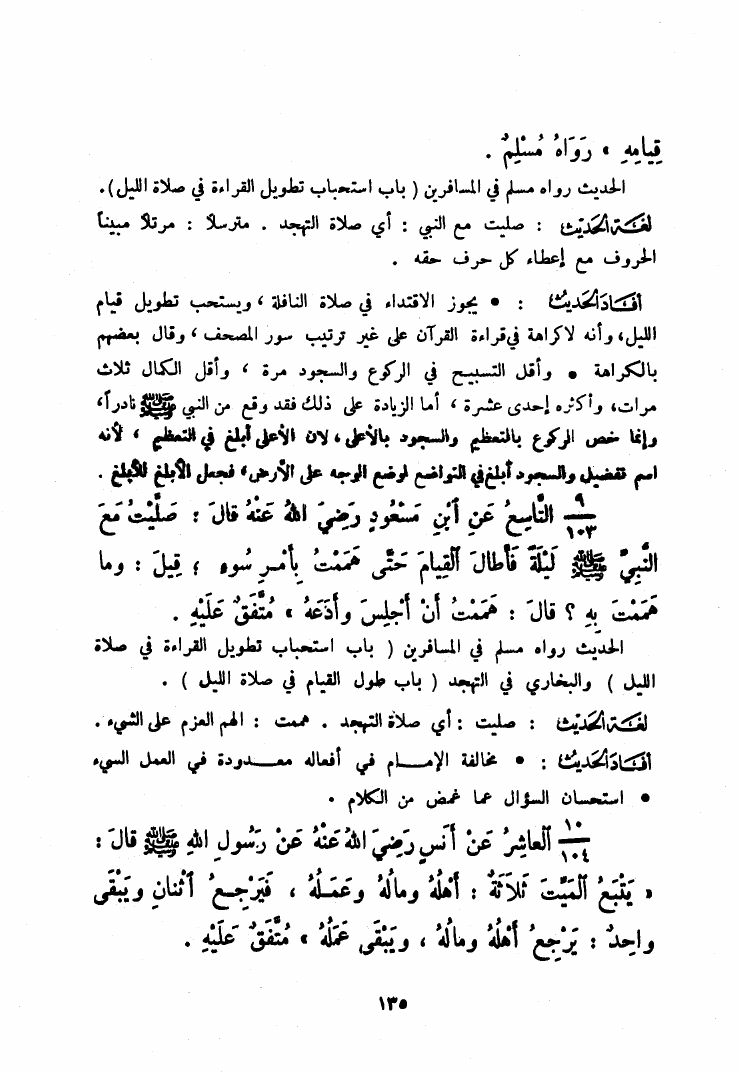 قِيامِهِ » رَوَاهُ مُسْلِمٌ .
الحديث رواه مسلم في المسافرين ( باب استحباب تطويل القراءة في صلاة الليل ) .
لغَة الحَديث : صليت مع النبي : أي صلاة التهجد . مترسلًا : مرتلًا مبيناً
الحروف مع إعطاء كل حرف حقه .
أفَادَ الحَديث : • يجوز الاقتداء في صلاة النافلة ، ويستحب تطويل قيام
الليل ، وأنه لا كراهة في قراءة القرآن على غير ترتيب سور المصحف ، وقال بعضهم
بالكراهة • وأقل التسبيح في الركوع والسجود مرة ، وأقل الكمال ثلاث
مرات ، وأكثره إحدى عشرة ، أما الزيادة على ذلك فقد وقع من النبي ﷺ نادراً ،
وإنما خص الركوع بالتعظيم والسجود بالأعلى ، لان الأعلى أبلغ في التعظيم ، لأنه
اسم تفضيل والسجود أبلغ في التواضع لوضع الوجه على الأرض ، فجعل الأبلغ للأبلغ .
٩/١٠٣ التَّاسِعُ عَنِ ابْنِ مَسْعُودٍ رَضِيَ اللهُ عَنْهُ قالَ : صَلَّيْتُ مَعَ
النَّبِيِّ ﷺ لَيْلَةً فَأَطَالَ الْقِيامَ حَتَّى هَمَمْتُ بِأَمْرِ سُوءٍ ؛ قِيلَ : وما
هَمَمْتَ بِهِ ؟ قالَ : هَمَمْتُ أَنْ أَجْلِسَ وأَدَعَهُ » مُتَّفَقٌ عَلَيْهِ .
الحديث رواه مسلم في المسافرين ( باب استحباب تطويل القراءة في صلاة
الليل ) والبخاري في التهجد ( باب طول القيام في صلاة الليل ) .
لغَة الحَديث : صليت : أي صلاة التهجد . هممت : الهم العزم على الشيء .
أفَادَ الحَديث : • مخالفة الإمـــام في أفعاله معـــدودة في العمل السيء
• استحسان السؤال عما غمض من الكلام .
١٠/١٠٤ الْعاشِرُ عَنْ أَنَسٍ رَضِيَ اللهُ عَنْهُ عَنْ رَسُولِ اللهِ ﷺ قالَ :
« يَتْبَعُ الْمَيِّتَ ثَلَاثَةٌ : أَهْلُهُ ومالُهُ وعَمَلُهُ ، فَيَرْجِعُ اثْنانِ ويَبْقَى
واحِدٌ : يَرْجِعُ أَهْلُهُ ومالُهُ ، ويَبْقَى عَمَلُهُ » مُتَّفَقٌ عَلَيْهِ .
١٣٥